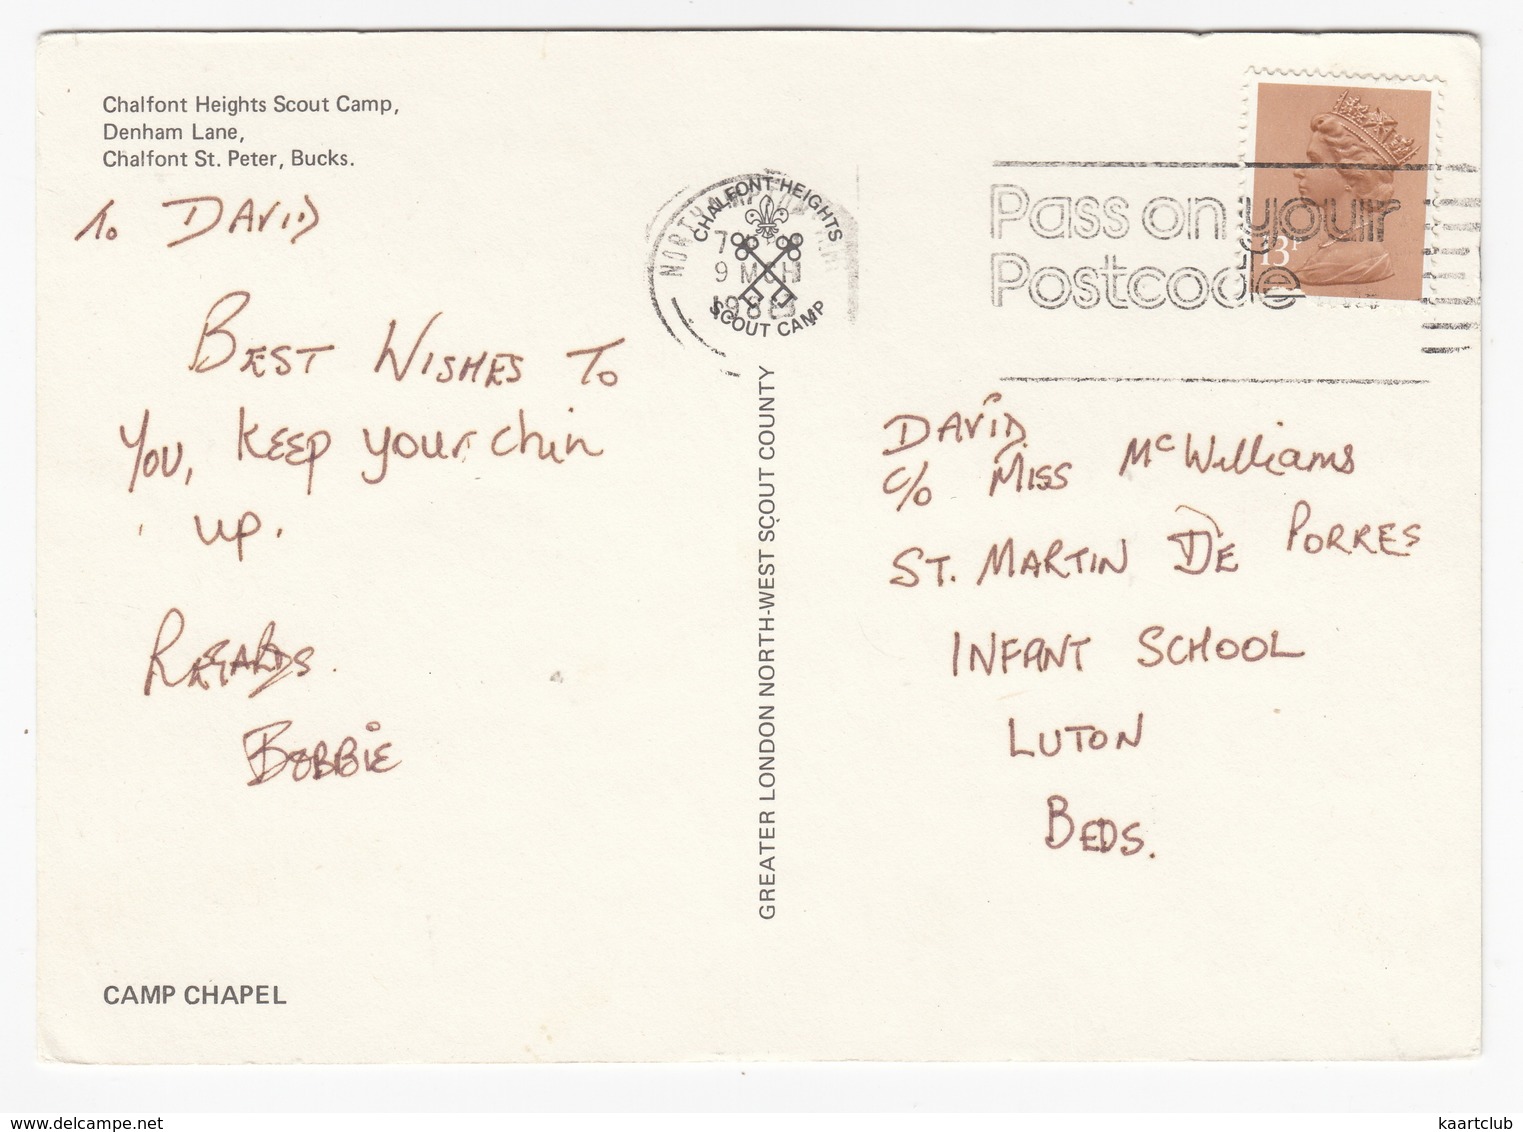 Chalfont Heights Scout Camp,
Denham Lane,
Chalfont St. Peter, Bucks.
To DAVID
BEST WISHES TO
YOU, KEEP your chin
up.
REGARDS.
BOBBIE
CAMP CHAPEL
CHALFONT HEIGHTS
SCOUT CAMP
9 MCH
GREATER LONDON NORTH-WEST SCOUT COUNTY
Pass on your
Postcode
13P
DAVID
C/O MISS McWilliams
ST. MARTIN DE PORRES
INFANT SCHOOL
LUTON
BEDS.
delcampe.net
kaartclub